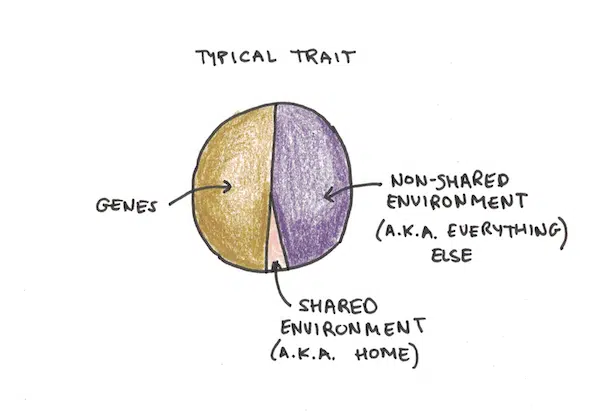 TYPICAL TRAIT
GENES
NON-SHARED
ENVIRONMENT
(A.K.A. EVERYTHING)
ELSE
SHARED
ENVIRONMENT
(A.K.A. HOME)